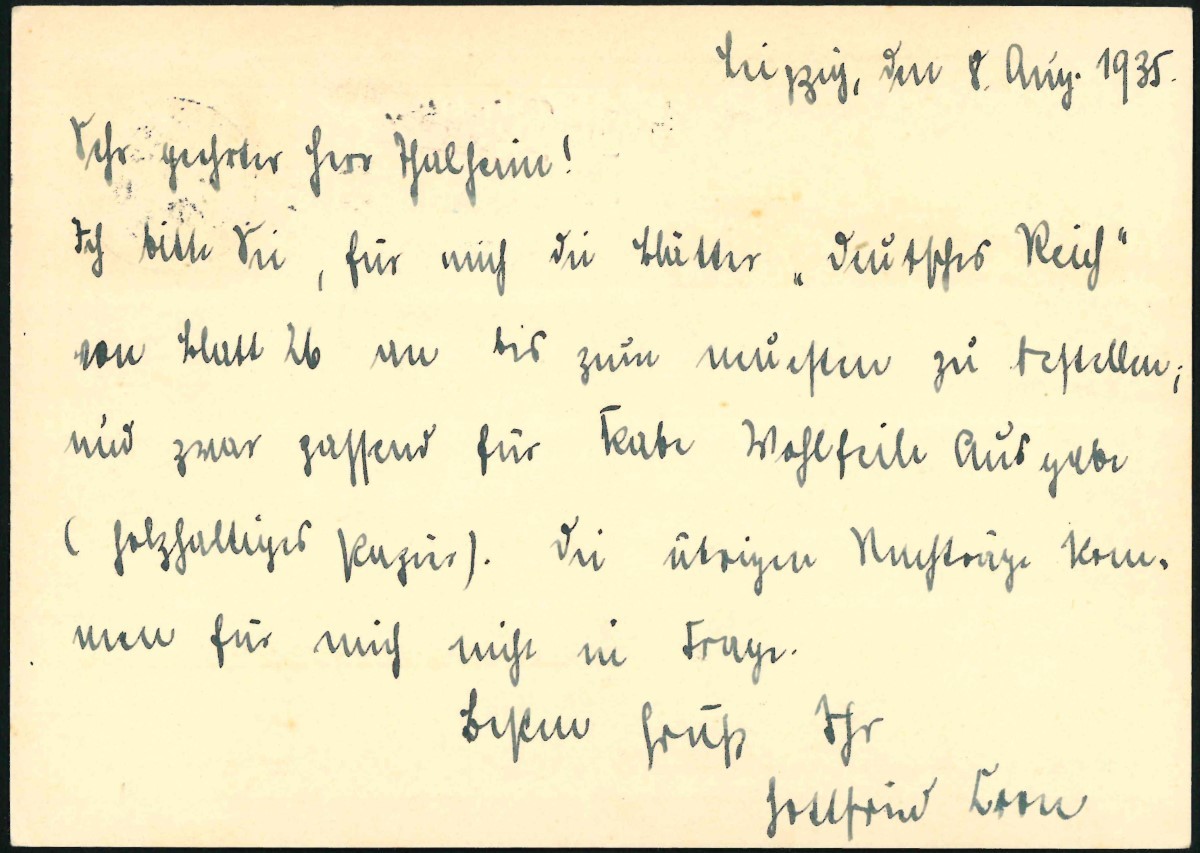 Leipzig, den 8. Aug. 1935.
Sehr geehrter Herr Thalheim!
Ich bitte Sie, für mich die Blätter „Deutsches Reich“
von Blatt 26 an bis zum neuesten zu bestellen;
und zwar passend für Kabe Wohlfeile Ausgabe
(holzhaltiges Papier). Die übrigen Nachträge kom-
men für mich nicht in Frage.
Besten Gruß Ihr
Gottfried